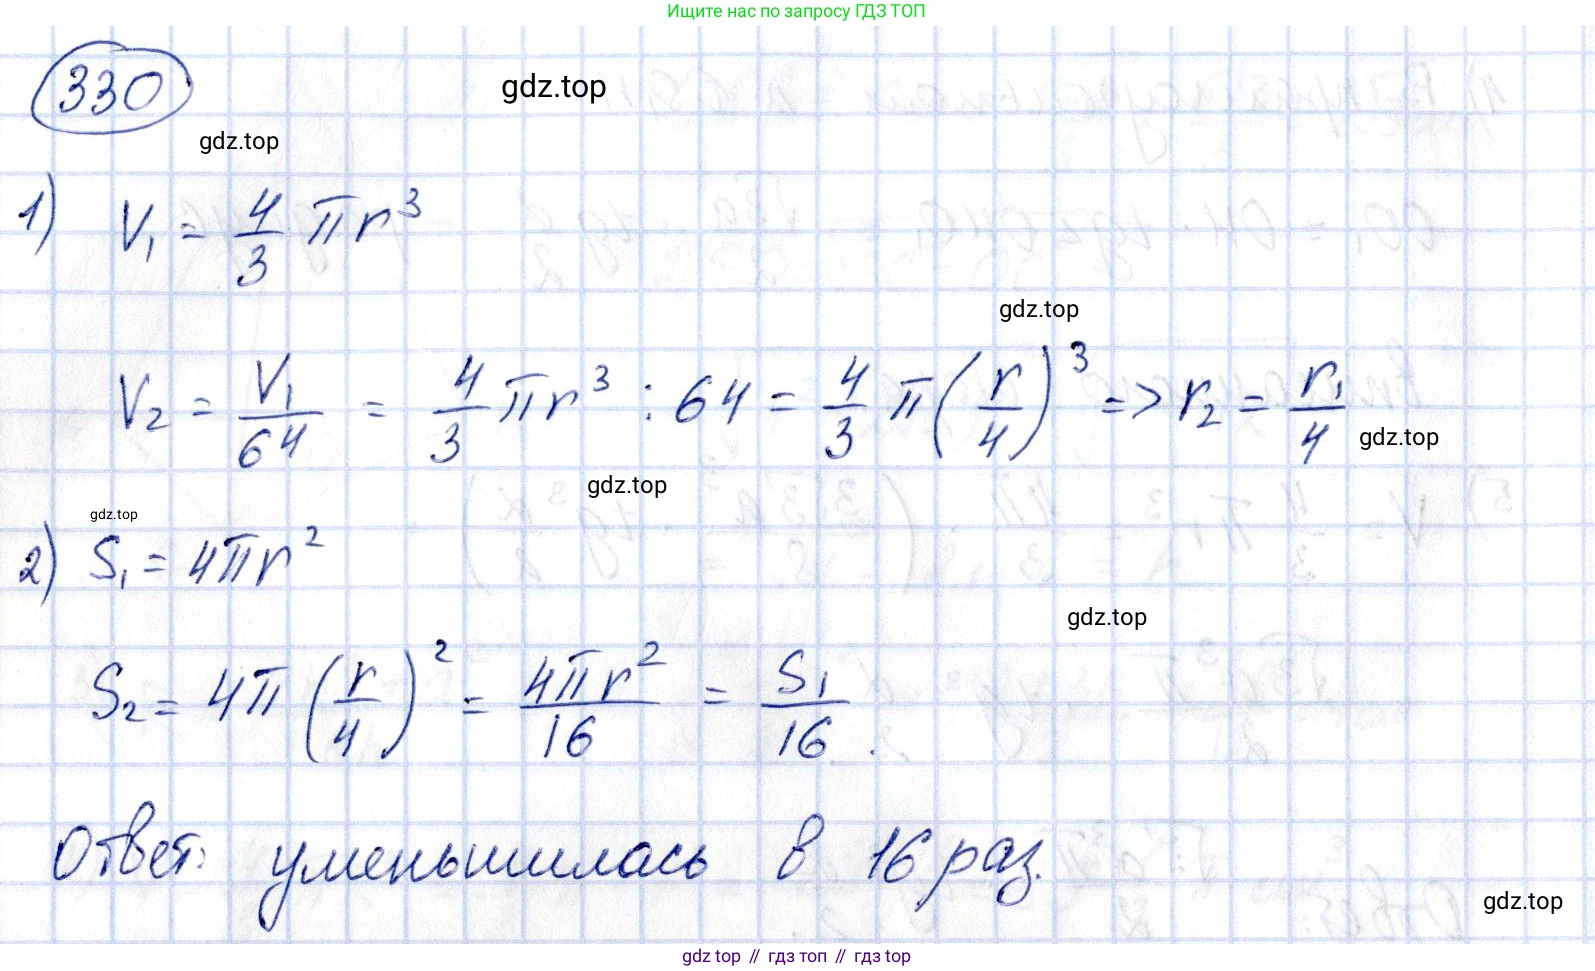 Ищите нас по запросу ГДЗ ТОП
330
gdz.top
gdz.top
1) V₁ = 4/3 πr³
gdz.top
V₂ = V₁/64 = 4/3 πr³ : 64 = 4/3 π(r/4)³ => r₂ = r₁/4
gdz.top
gdz.top
gdz.top
2) S₁ = 4πr²
gdz.top
S₂ = 4π(r/4)² = 4πr²/16 = S₁/16.
Ответ: уменьшилась в 16 раз.
gdz.top
gdz top // гдз топ // гдз top